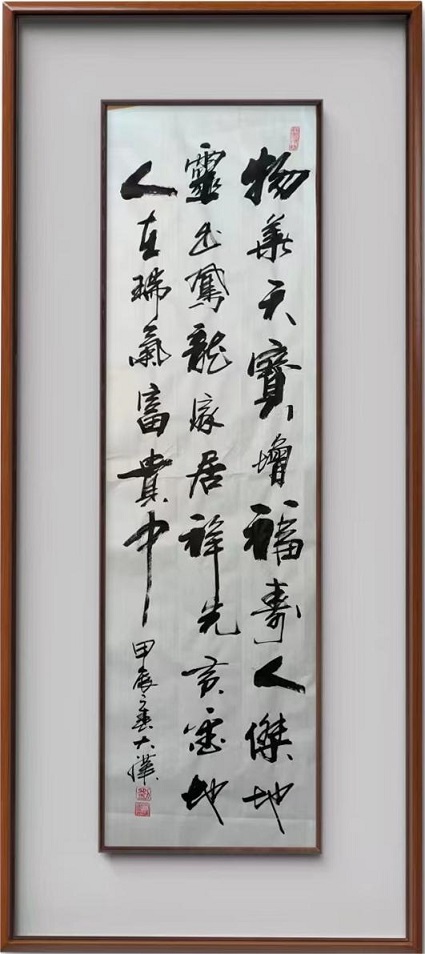 物華天寶增福壽人傑地
靈出鳳龍家居祥光黃金地
人在瑞氣富貴中
甲辰之春大